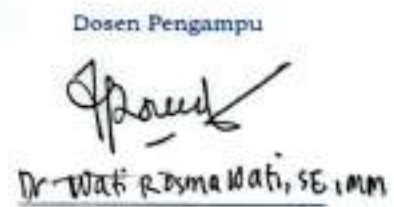 Dosen Pengampu
Dr. Wati Rosmawati, SE, MM